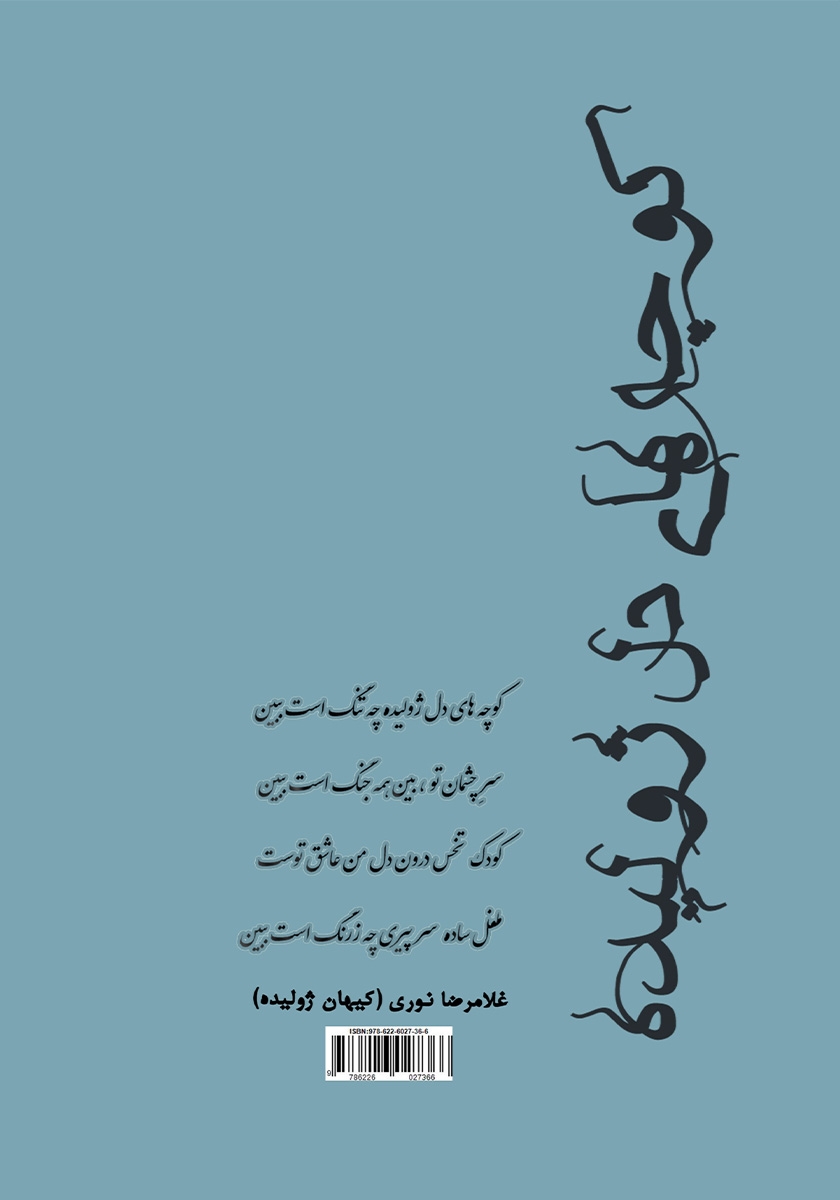 کوچه های دل ژولیده
کوچه های دل ژولیده چه تنگ است ببین
سرِ چشمان تو ، بین همه جنگ است ببین
کودک تخس درون دل من عاشق توست
طفل ساده سر پیری چه زرنگ است ببین
غلامرضا نوری (کیهان ژولیده)
ISBN:978-622-6027-36-6
9 786226 027366